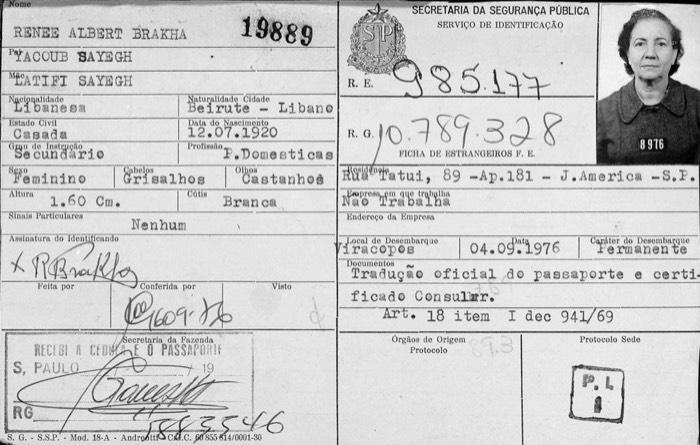 Nome
RENEE ALBERT BRAKHA
19889
Pai
YACOUB SAYEGH
Mãe
LATIFI SAYEGH
Nacionalidade
Libanesa
Naturalidade Cidade
Beirute - Libano
Estado Civil
Casada
Data do Nascimento
12.07.1920
Grau de Instrução
Secundário
Profissão
P.Domesticas
Sexo
Feminino
Cabelos
Grisalhos
Olhos
Castanhos
Altura
1.60 Cm.
Cútis
Branca
Sinais Particulares
Nenhum
Assinatura do Identificando
x R Brakha
Feita por
Conferida por
Visto
1609-76
Secretaria da Fazenda
RECIBI A CEDULA E O PASSAPORTE
S, PAULO / 19
RG
S. G. - S.S.P. - Mod. 18-A - Andreotti - C.G.C. 60 855 614/0001-30
SECRETARIA DA SEGURANÇA PÚBLICA
SERVIÇO DE IDENTIFICAÇÃO
SP
R. E. 985.177
R. G. 10.789.328
FICHA DE ESTRANGEIROS F. E.
8976
Residência
Rua Tatui, 89 -Ap.181 - J.America -S.P.
Empresa em que trabalha
Não Trabalha
Endereço da Empresa
Local de Desembarque
Viracopos
Data
04.09.1976
Caráter do Desembarque
Permanente
Documentos
Tradução oficial do passaporte e certi-
ficado Consular.
Art. 18 item I dec 941/69
Órgãos de Origem
Protocolo
Protocolo Sede
P. I.
1